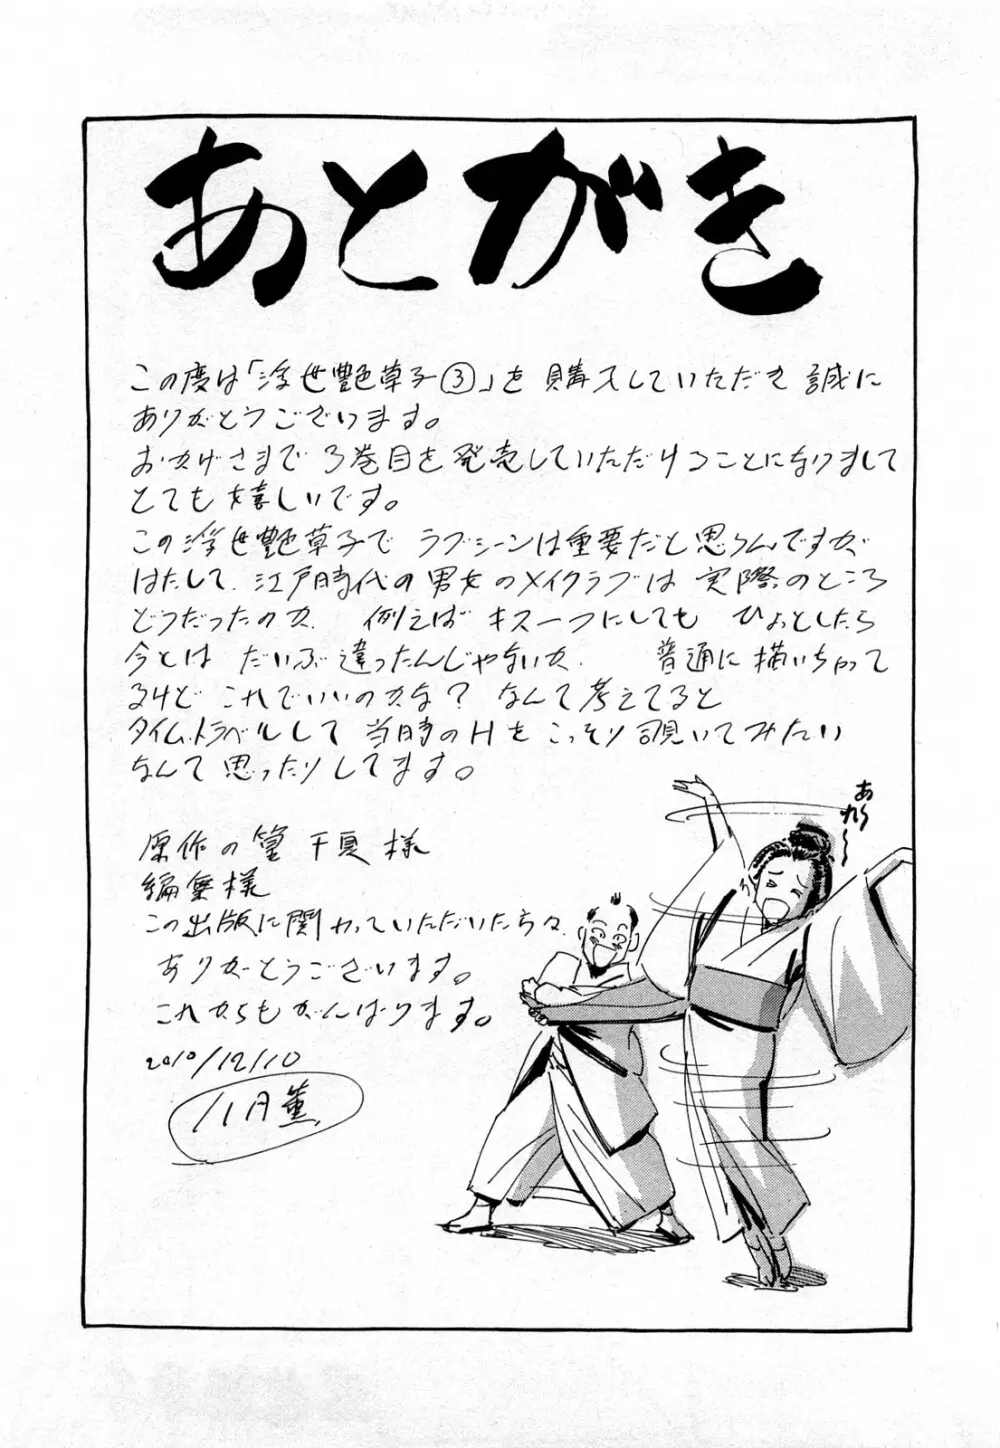 あとがき
この度は「浮世艶草子③」を購入していただき誠に
ありがとうございます。
おかげさまで3巻目を発売していただけることになりまして
とても嬉しいです。
この浮世艶草子で ラブシーンは重要だと思うんですが
はたして、江戸時代の男女のメイクラブは 実際のところ
どうだったのか 例えば キス一つにしても ひょっとしたら
今とは だいぶ違ったんじゃないか 普通に描いちゃって
るけど これでいいのかな？ なんて考えてると
タイムトラベルして 当時のHを こっそり覗いてみたい
なんて思ったりしてます。
あ〜れ〜
原作の篁 千夏様
編集様
この出版に関わっていただいた方々
ありがとうございます。
これからもがんばります。
2010/12/10
八月薫